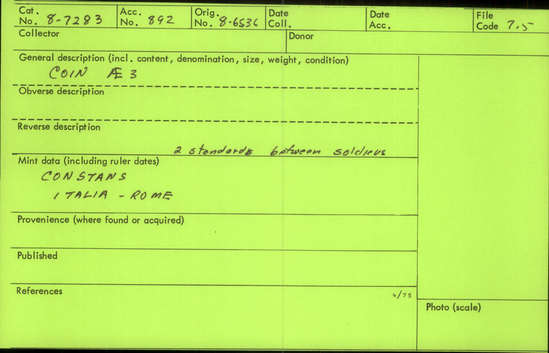 Cat. No. 8-7283 Acc. No. 892 Orig. No. 8-6536 Date Coll. Date Acc. File Code 7.5
Collector Donor
General description (incl. content, denomination, size, weight, condition)
COIN Æ 3
Obverse description
Reverse description
2 standards between soldiers
Mint data (including ruler dates)
CONSTANS
ITALIA - ROME
Provenience (where found or acquired)
Published
References
Photo (scale)